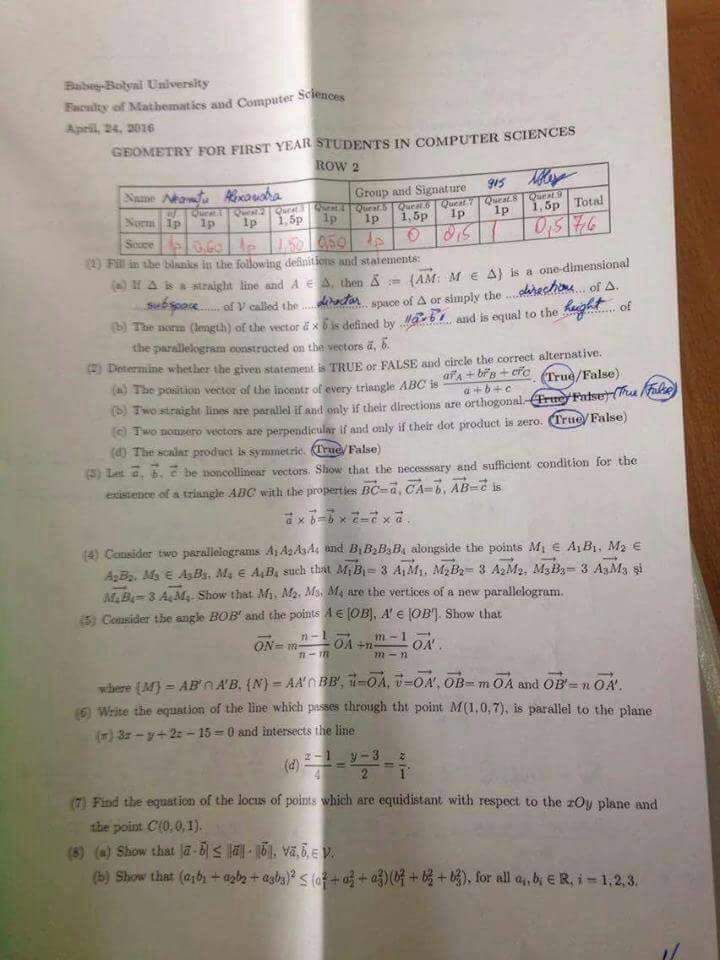 Babeş-Bolyai University
Faculty of Mathematics and Computer Sciences
April, 24, 2016
GEOMETRY FOR FIRST YEAR STUDENTS IN COMPUTER SCIENCES
ROW 2
Name Neamtu Alexandra Group and Signature 915
Norm of 1p Quest.1 1p Quest.2 1p Quest.3 1,5p Quest.4 1p Quest.5 1p Quest.6 1,5p Quest.7 1p Quest.8 1p Quest.9 1,5p Total
Score 1p 0,60 1p 1,50 0,50 1p 0 0,5 1 0,5 7,6
(1) Fill in the blanks in the following definitions and statements:
(a) If Δ is a straight line and A ∈ Δ, then Δ⃗ := {AM⃗: M ∈ Δ} is a one-dimensional
subspace of V called the director space of Δ or simply the direction of Δ.
(b) The norm (length) of the vector a⃗ × b⃗ is defined by ||a⃗×b⃗|| and is equal to the height of
the parallelogram constructed on the vectors a⃗, b⃗.
(2) Determine whether the given statement is TRUE or FALSE and circle the correct alternative.
(a) The position vector of the incentr of every triangle ABC is (ar⃗_A + br⃗_B + cr⃗_C)/(a + b + c). (True/False)
(b) Two straight lines are parallel if and only if their directions are orthogonal. (True/False) (True/False)
(c) Two nonzero vectors are perpendicular if and only if their dot product is zero. (True/False)
(d) The scalar product is symmetric. (True/False)
(3) Let a⃗, b⃗, c⃗ be noncollinear vectors. Show that the necesssary and sufficient condition for the
existence of a triangle ABC with the properties BC⃗=a⃗, CA⃗=b⃗, AB⃗=c⃗ is
a⃗ × b⃗=b⃗ × c⃗=c⃗ × a⃗ .
(4) Consider two parallelograms A₁A₂A₃A₄ and B₁B₂B₃B₄ alongside the points M₁ ∈ A₁B₁, M₂ ∈
A₂B₂, M₃ ∈ A₃B₃, M₄ ∈ A₄B₄ such that M₁B₁⃗= 3 A₁M₁⃗, M₂B₂⃗= 3 A₂M₂⃗, M₃B₃⃗= 3 A₃M₃⃗ şi
M₄B₄⃗= 3 A₄M₄⃗. Show that M₁, M₂, M₃, M₄ are the vertices of a new parallelogram.
(5) Consider the angle BOB′ and the points A ∈ [OB], A′ ∈ [OB′]. Show that
ON⃗= m (n − 1)/(n − m) OA⃗ +n (m − 1)/(m − n) OA′⃗ .
where {M} = AB′ ∩ A′B, {N} = AA′ ∩ BB′, u⃗=OA⃗, v⃗=OA′⃗, OB⃗= m OA⃗ and OB′⃗= n OA′⃗.
(6) Write the equation of the line which passes through tht point M(1, 0, 7), is parallel to the plane
(π) 3x − y + 2z − 15 = 0 and intersects the line
(d) (x − 1)/4 = (y − 3)/2 = z/1.
(7) Find the equation of the locus of points which are equidistant with respect to the xOy plane and
the point C(0, 0, 1).
(8) (a) Show that |a⃗ · b⃗| ≤ ||a⃗|| · ||b⃗||, ∀a⃗, b⃗, ∈ V.
(b) Show that (a₁b₁ + a₂b₂ + a₃b₃)² ≤ (a₁² + a₂² + a₃²)(b₁² + b₂² + b₃²), for all aᵢ, bᵢ ∈ ℝ, i = 1, 2, 3.